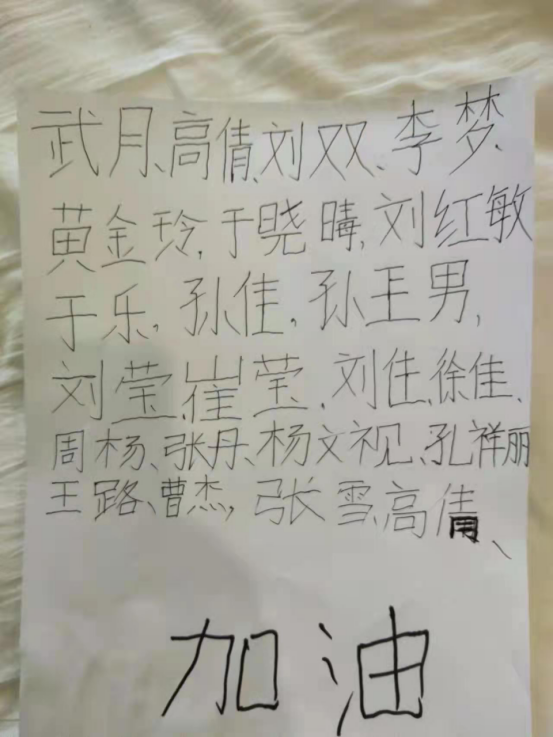 武月、高倩、刘双、李梦、
黄金玲,于晓晴,刘红敏
于乐,孙佳,孙王男,
刘莹、崔莹、刘佳、徐佳、
周杨、张丹、杨文视、孔祥丽
王路、曹杰,张雪、高倩、
加油